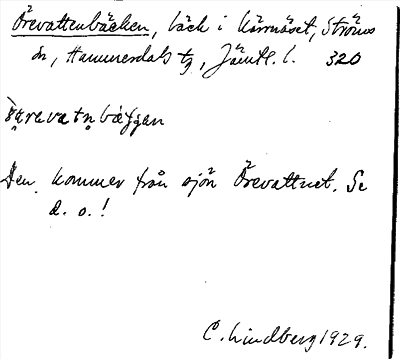 Örevattenbäcken, bäck i Kärrnäset, Ströms
sn, Hammerdals tg, Jämtl. l. 320
Den kommer från sjön Örevattnet. Se
d. o.!
C. Lindberg 1929.